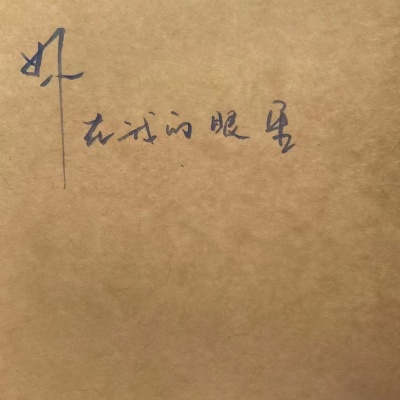 在我的眼里